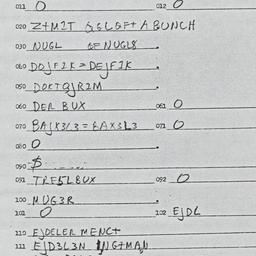 011 O 012 O
020 Z+M2T GGLGF+ A BUNCH
030 NUGL GF NUGLS
060 DOJF2K = DEJF1K
050 DOKTQJR2M
060 DER BUX 061 O
070 BAJK3/3 = EAX3L3 071 O
080 O
090 $
091 TREFLBUX 092 O
100 MUG3R
101 O 102 EJDL
110 EJDELER MENC+
111 EJD3L3N NG+MAN